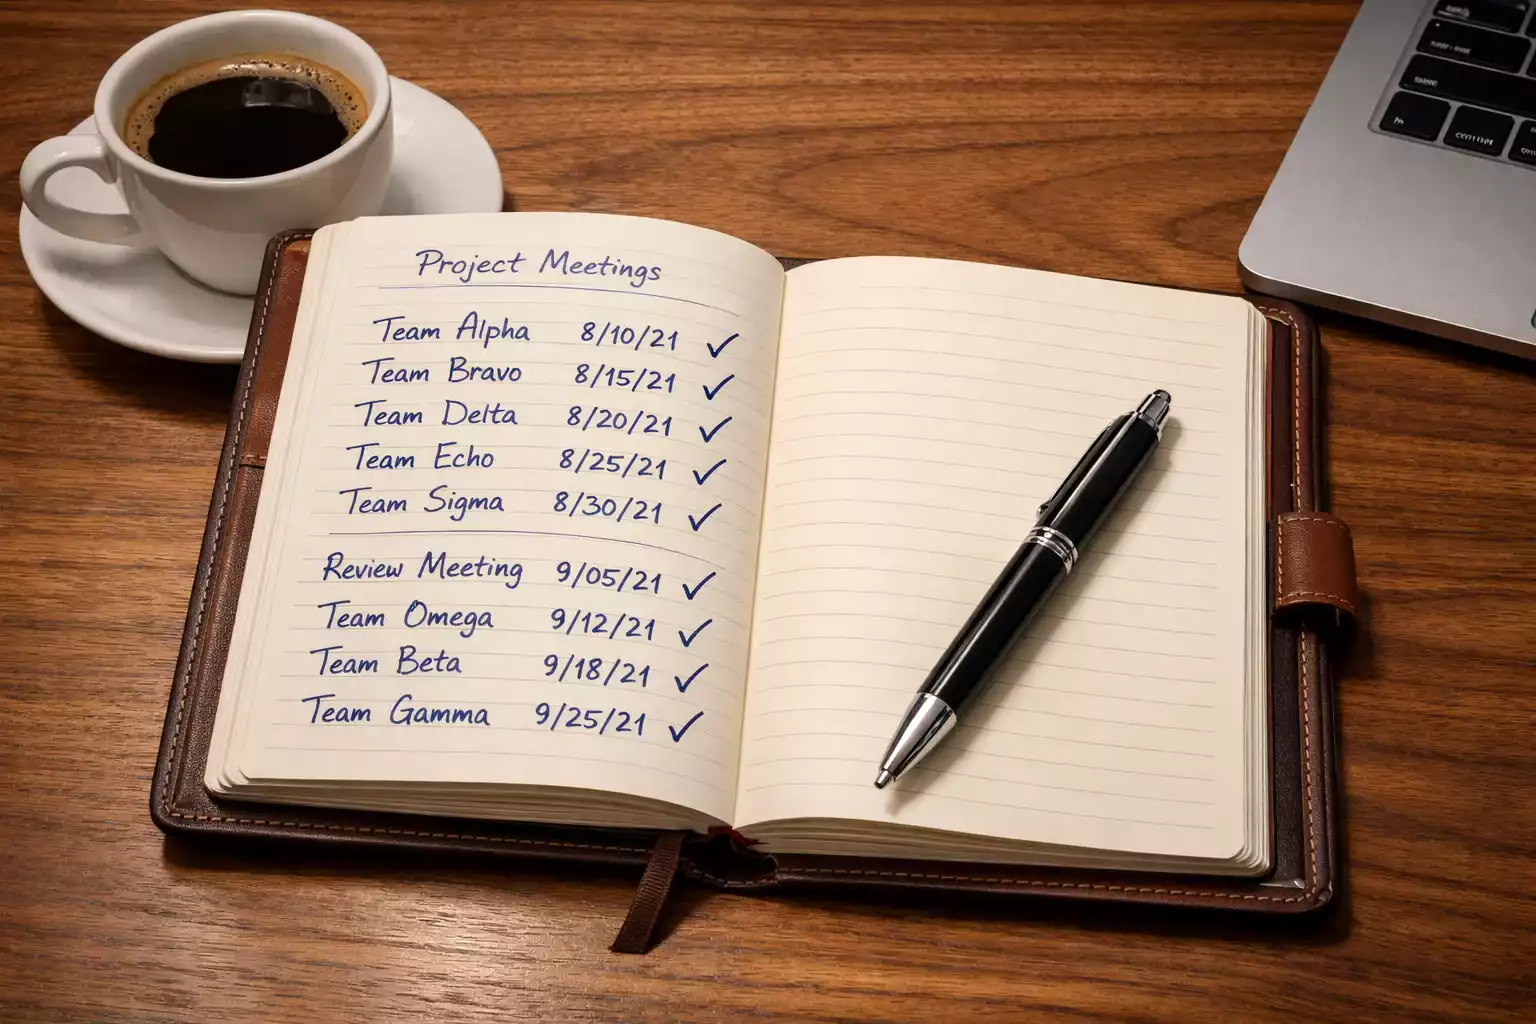 Project Meetings
Team Alpha 8/10/21 ✓
Team Bravo 8/15/21 ✓
Team Delta 8/20/21 ✓
Team Echo 8/25/21 ✓
Team Sigma 8/30/21 ✓
Review Meeting 9/05/21 ✓
Team Omega 9/12/21 ✓
Team Beta 9/18/21 ✓
Team Gamma 9/25/21 ✓
fn